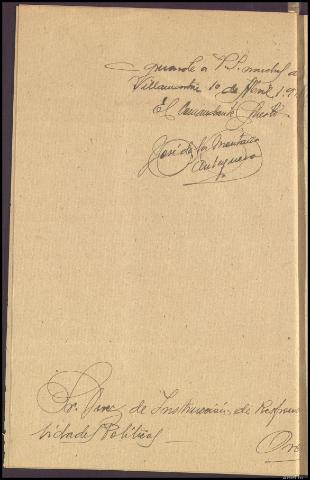 guarde a V.S. muchos a
Villamartin 10 de Abril 1.9
El Comandante
José de la Montaña
Antequera
Sr. Juez de Instrucción de Respons
bilidades Políticas